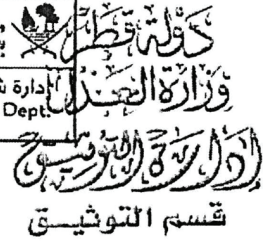 دولة قطر
وزارة العدل
إدارة التوثيق
قسم التوثيق
إدارة ش
Dept.